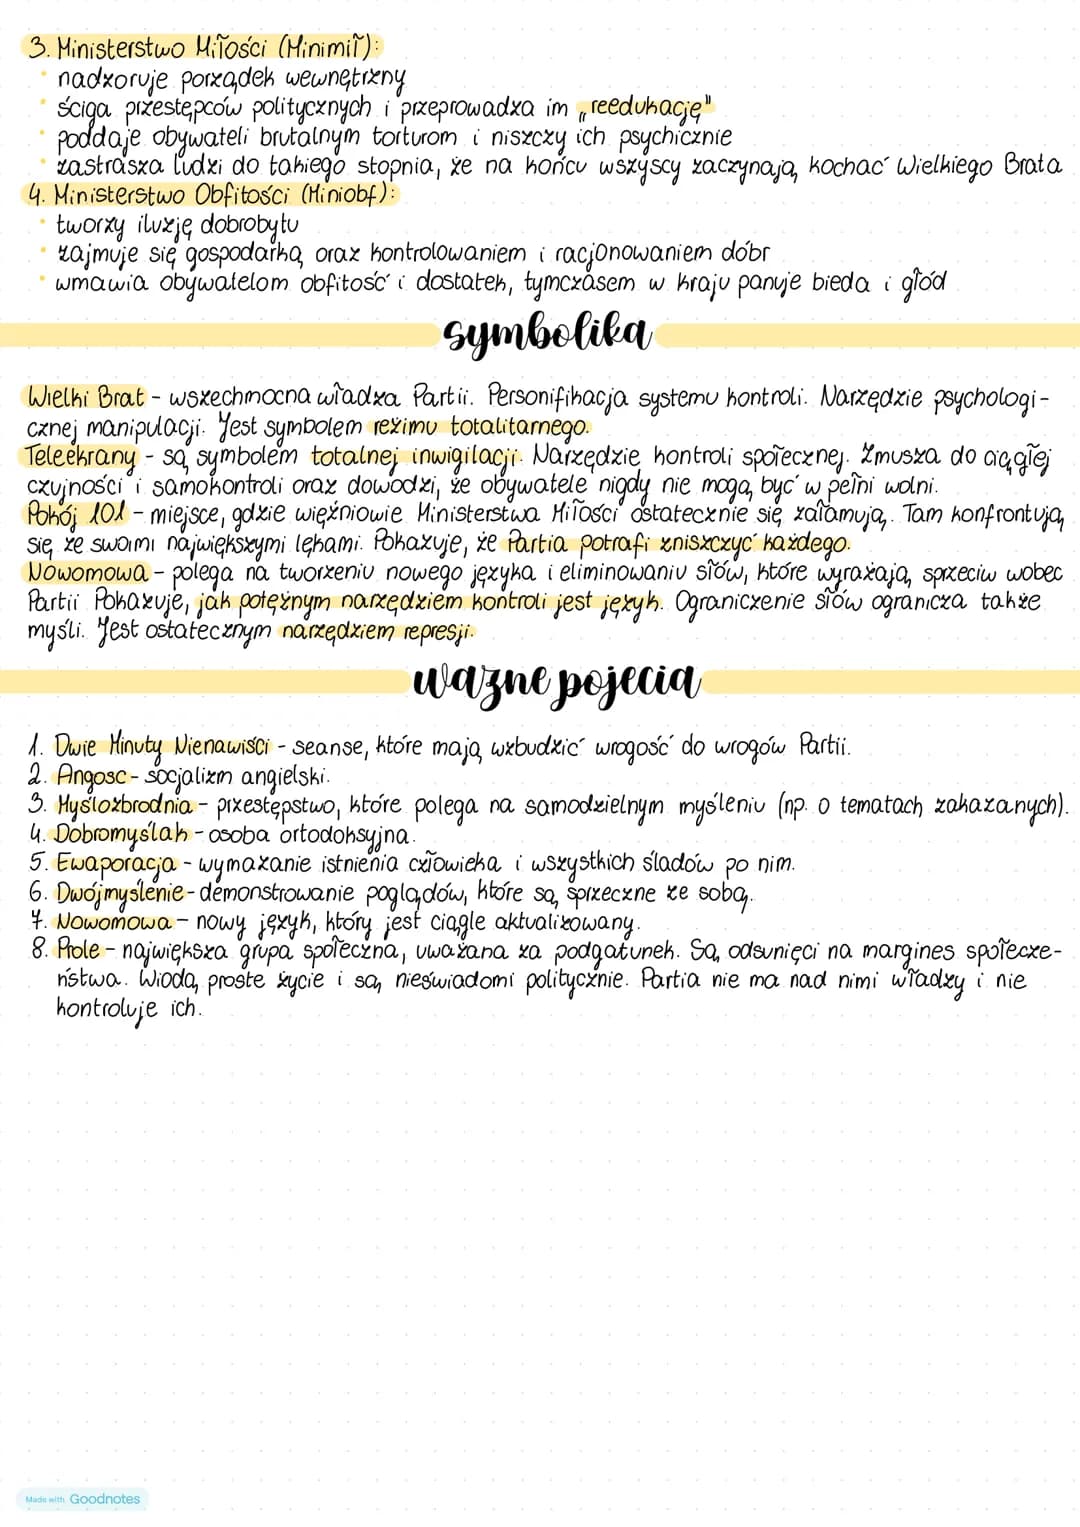 3. Ministerstwo Miłości (Minimił):
• nadzoruje porządek wewnętrzny
• ściga przestępców politycznych i przeprowadza im „reedukację"
• poddaje obywateli brutalnym torturom i niszczy ich psychicznie
• zastrasza ludzi do takiego stopnia, że na końcu wszyscy zaczynają kochać Wielkiego Brata
4. Ministerstwo Obfitości (Miniobf):
• tworzy iluzję dobrobytu
• zajmuje się gospodarką oraz kontrolowaniem i racjonowaniem dóbr
• wmawia obywatelom obfitość i dostatek, tymczasem w kraju panuje bieda i głód
symbolika
Wielki Brat - wszechmocna władza Partii. Personifikacja systemu kontroli. Narzędzie psychologi-
cznej manipulacji. Jest symbolem reżimu totalitarnego.
Teleekrany - są symbolem totalnej inwigilacji. Narzędzie kontroli społecznej. Zmusza do ciągłej
czujności i samokontroli oraz dowodzi, że obywatele nigdy nie mogą być w pełni wolni.
Pokój 101 - miejsce, gdzie więźniowie Ministerstwa Miłości ostatecznie się załamują. Tam konfrontują
się ze swoimi największymi lękami. Pokazuje, że Partia potrafi zniszczyć każdego.
Nowomowa - polega na tworzeniu nowego języka i eliminowaniu słów, które wyrażają sprzeciw wobec
Partii Pokazuje, jak potężnym narzędziem kontroli jest język. Ograniczenie słów ogranicza także
myśli. Jest ostatecznym narzędziem represji.
wazne pojecia
1. Dwie Minuty Nienawiści - seanse, które mają wzbudzić wrogość do wrogów Partii.
2. Angosc - socjalizm angielski.
3. Myślozbrodnia - przestępstwo, które polega na samodzielnym myśleniu (np. o tematach zakazanych).
4. Dobromyślak - osoba ortodoksyjna.
5. Ewaporacja - wymazanie istnienia człowieka i wszystkich śladów po nim.
6. Dwójmyślenie - demonstrowanie poglądów, które są sprzeczne ze sobą.
7. Nowomowa - nowy język, który jest ciągle aktualizowany.
8. Prole - największa grupa społeczna, uważana za podgatunek. Są odsunięci na margines społecze-
ństwa. Wiodą proste życie i są nieświadomi politycznie. Partia nie ma nad nimi władzy i nie
kontroluje ich.
Made with Goodnotes